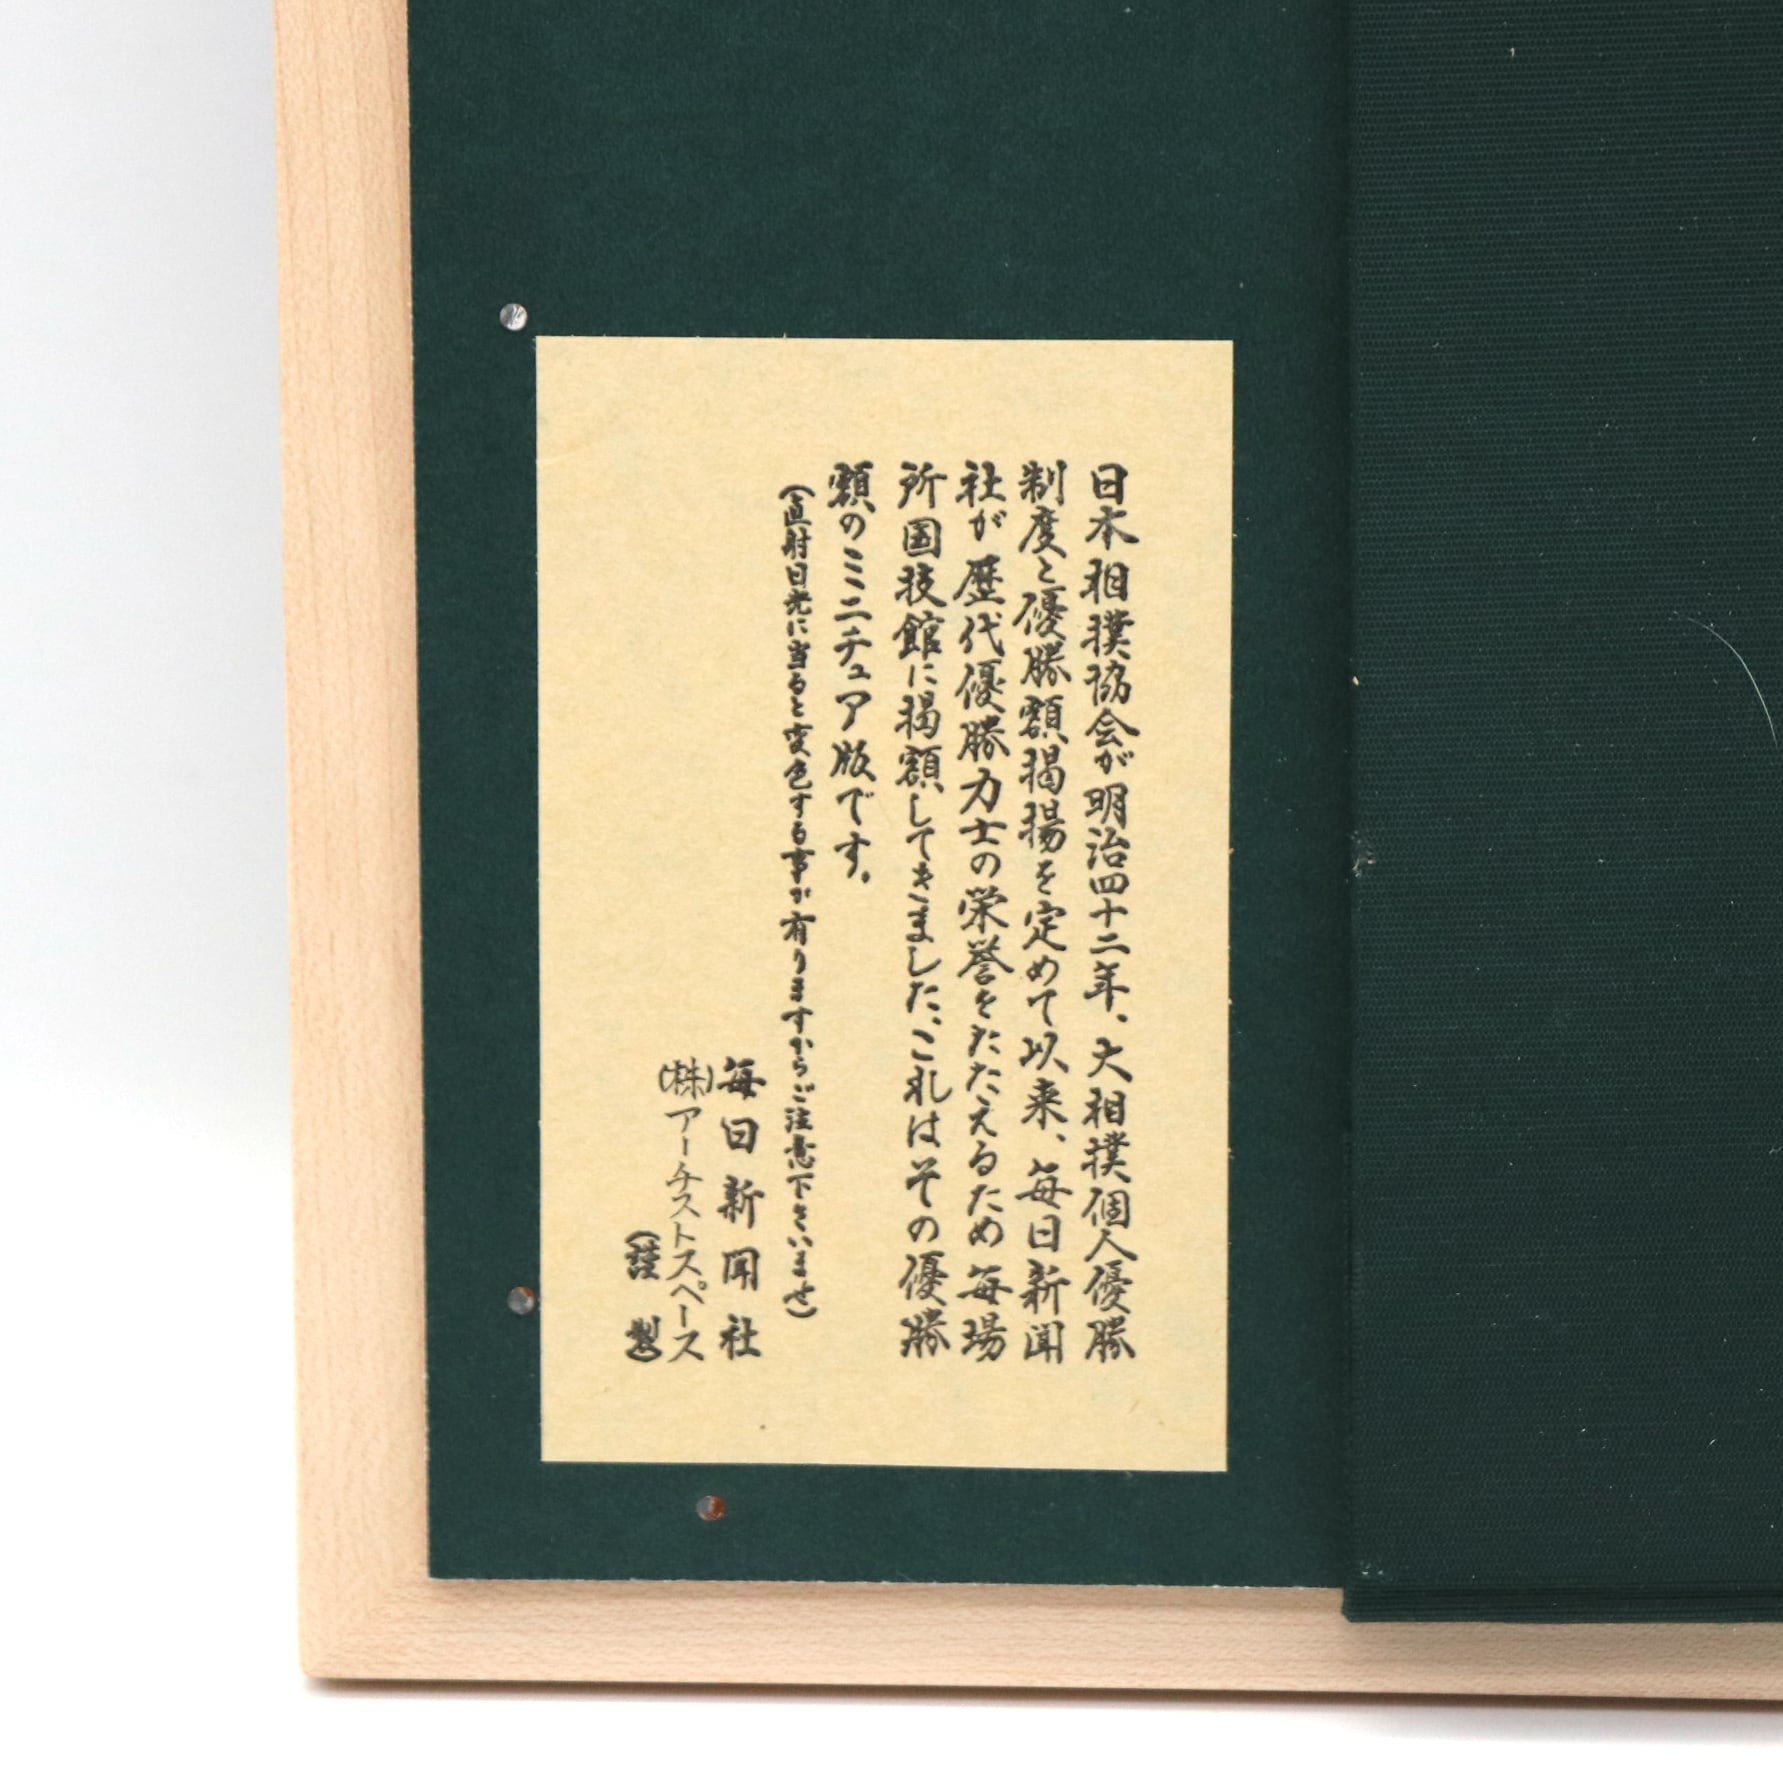 日本相撲協会が明治四十二年、大相撲個人優勝
制度と優勝額掲揚を定めて以来、毎日新聞
社が歴代優勝力士の栄誉をたたえるため毎場
所国技館に掲額してきました。これはその優勝
額のミニチュア版です。
(直射日光に当ると変色する事が有りますからご注意下さいませ)
毎日新聞社
(株)アーチストスペース
(謹製)